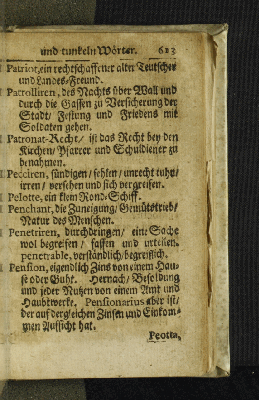 und tunkeln Wörter. 623
Patriot, ein rechtschaffener alter Teutscher
und Landes-Freund.
Patrolliren, des Nachts über Wall und
durch die Gassen zu Versicherung der
Stadt/ Festung und Friedens mit
Soldaten gehen.
Patronat-Recht/ ist das Recht bey den
Kirchen/ Pfarrer und Schuldiener zu
benahmen.
Pecciren, sündigen/ fehlen/ unrecht thun/
irren/ versehen und sich vergreifen.
Pelotte, ein klein Rond-Schiff.
Penchant, die Zuneigung/ Gemütstrieb/
Natur des Menschen.
Penetriren, durchdringen/ eine Sache
wol begreifen/ fassen und urteilen.
penetrable, verständlich/ begreiflich.
Pension, eigendlich Zins von einem Hau-
se oder Guht. Hernach/ Besoldung
und jeder Nutzen von einem Amt und
Haubtwerke. Pensionarius aber ist/
der auf dergleichen Zinsen und Einkom-
men Aufsicht hat.
Peotta,